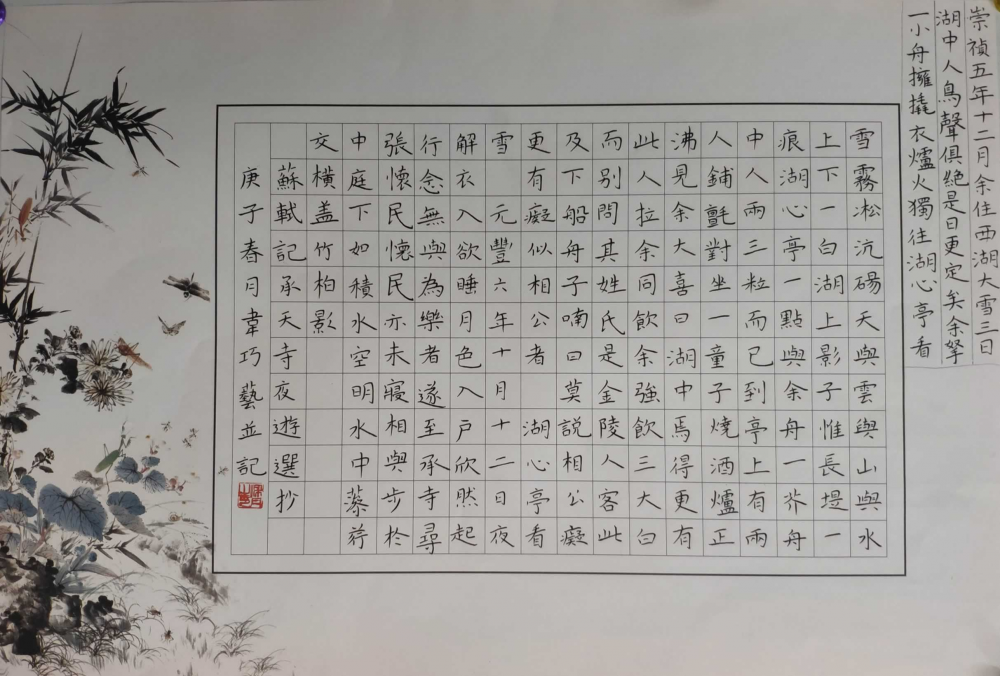 崇禎五年十二月余住西湖大雪三日
湖中人鳥聲俱絕是日更定矣余拏
一小舟擁撬衣爐火獨往湖心亭看
雪霧凇沆碭天與雲與山與水
上下一白湖上影子惟長堤一
痕湖心亭一點與余舟一芥舟
中人兩三粒而已到亭上有兩
人鋪氈對坐一童子燒酒爐正
沸見余大喜曰湖中焉得更有
此人拉余同飲余強飲三大白
而别問其姓氏是金陵人客此
及下船舟子喃曰莫説相公癡
更有癡似相公者 湖心亭看
雪 元豐六年十月十二日夜
解衣入欲睡月色入戶欣然起
行念無與為樂者遂至承寺尋
張懷民懷民亦未寢相與步於
中庭下如積水空明水中藻荇
交橫盖竹柏影
蘇軾記承天寺夜遊選抄
庚子春月韋巧藝並記